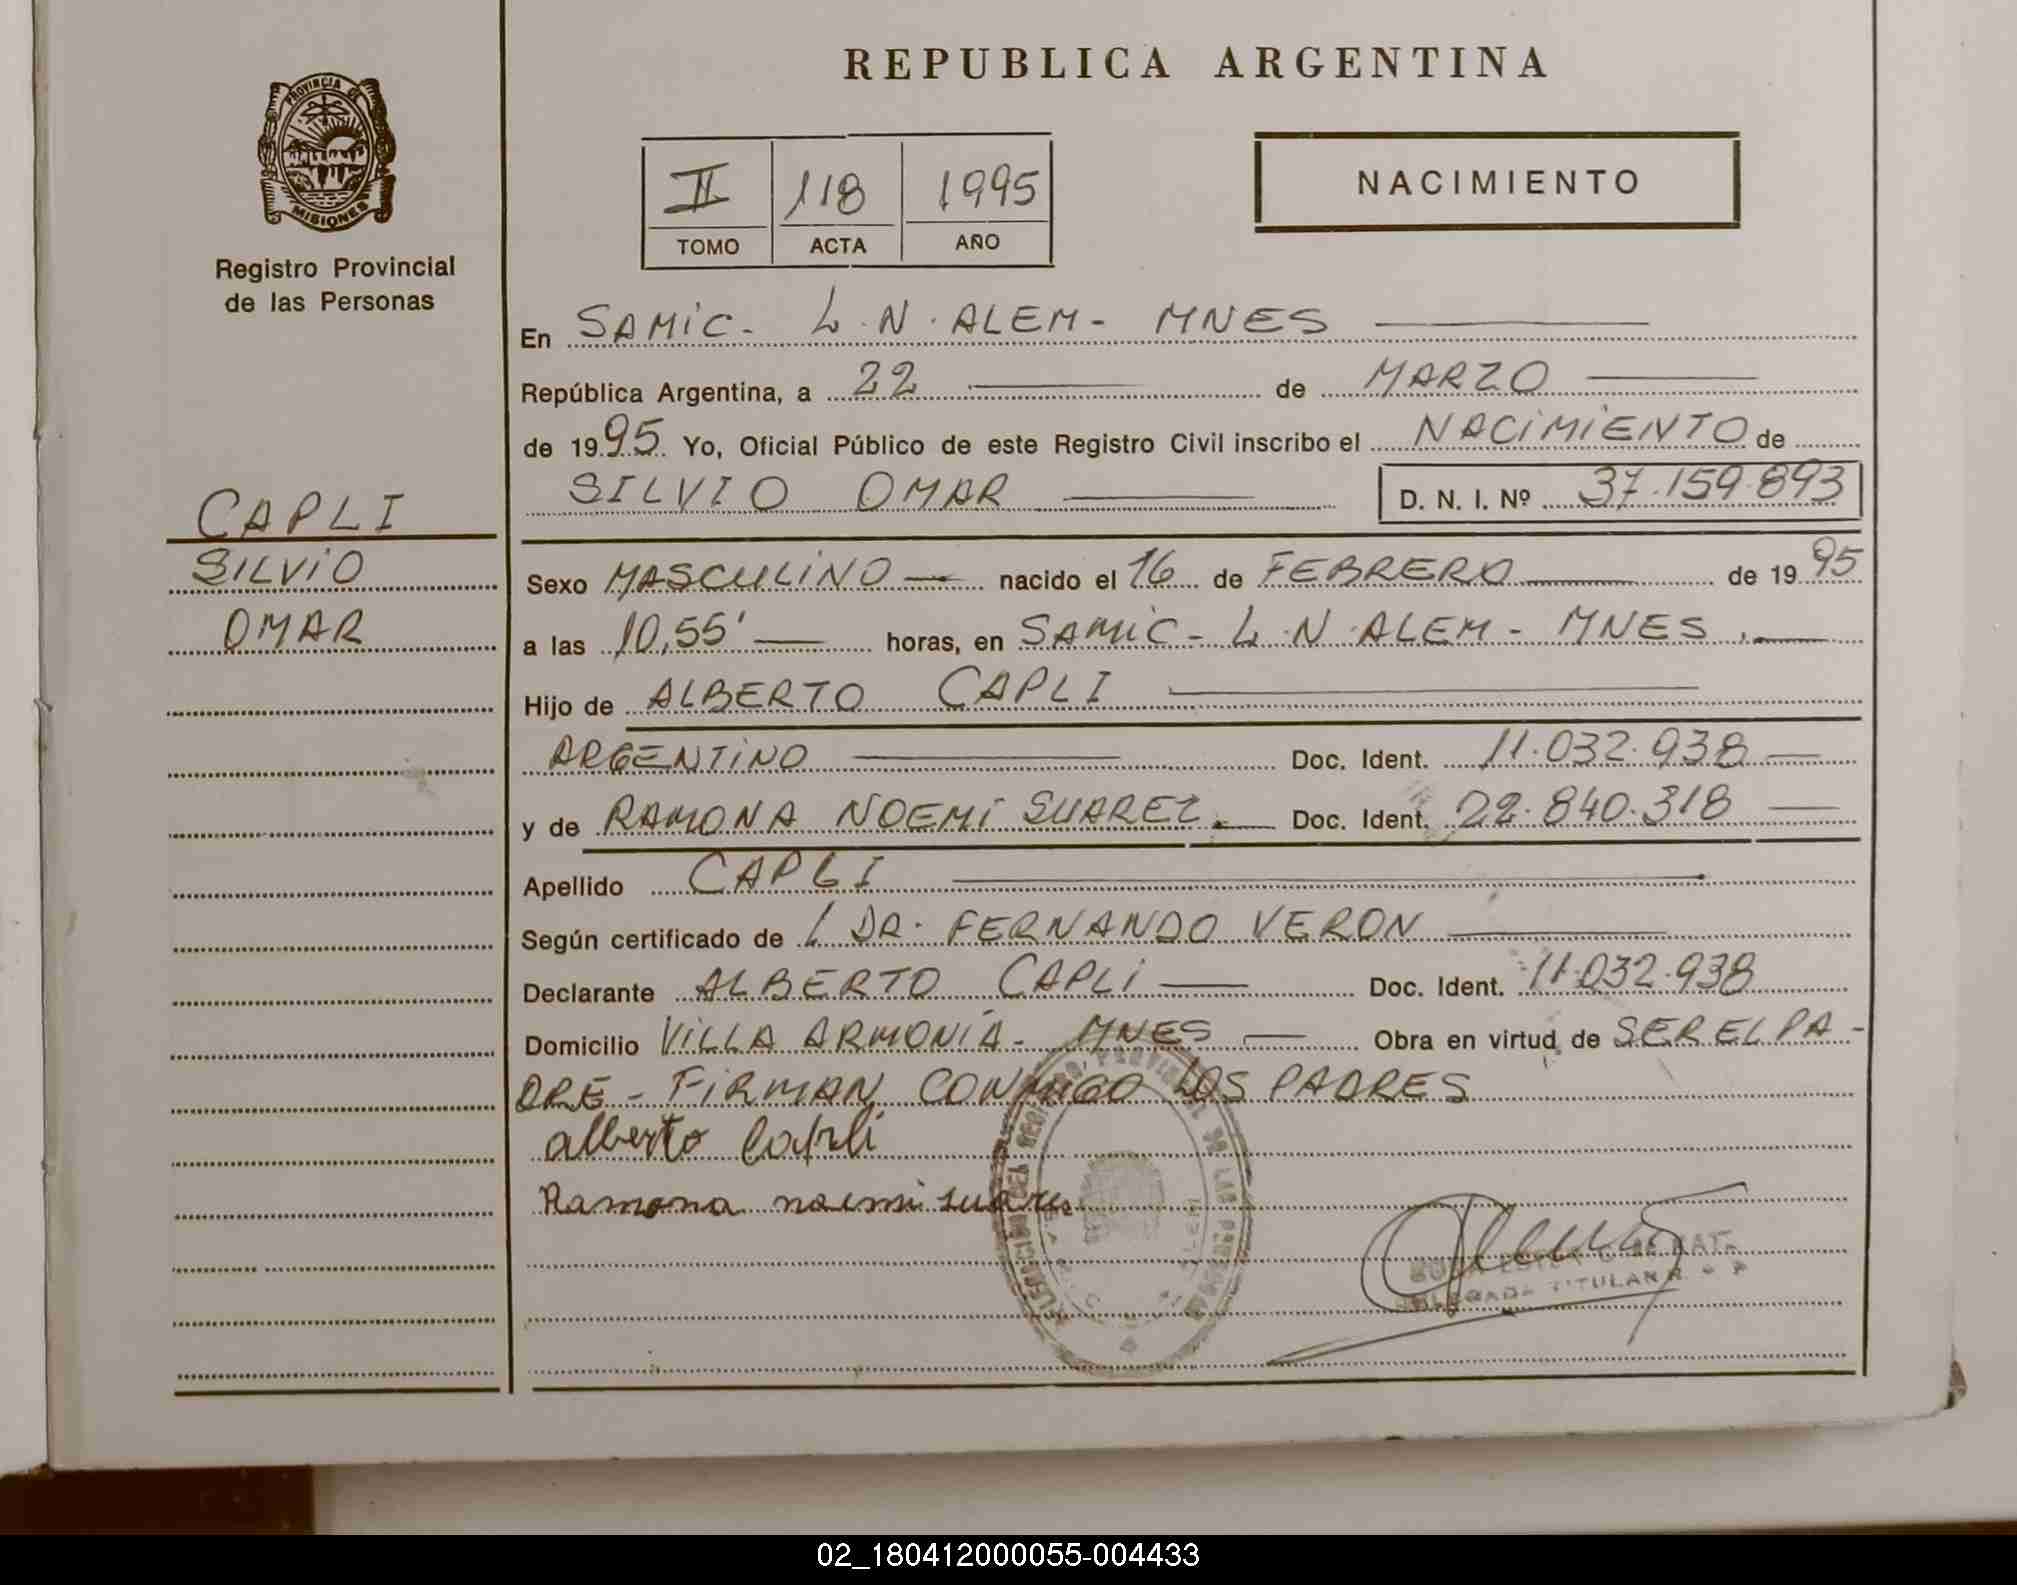 REPUBLICA ARGENTINA
PROVINCIA DE
MISIONES
Registro Provincial
de las Personas
II 118 1995
TOMO ACTA AÑO
NACIMIENTO
En SAMIC - L.N. ALEM - MNES
República Argentina, a 22 de MARZO
de 1995 Yo, Oficial Público de este Registro Civil inscribo el NACIMIENTO de
SILVIO OMAR D. N. I. Nº 37.159.893
CAPLI
SILVIO
OMAR
Sexo MASCULINO nacido el 16 de FEBRERO de 1995
a las 10,55' horas, en SAMIC - L.N. ALEM - MNES.
Hijo de ALBERTO CAPLI
ARGENTINO Doc. Ident. 11.032.938
y de RAMONA NOEMI SUAREZ. Doc. Ident. 22.840.318
Apellido CAPLI
Según certificado de DR. FERNANDO VERON
Declarante ALBERTO CAPLI Doc. Ident. 11.032.938
Domicilio VILLA ARMONIA - MNES Obra en virtud de SER EL PA-
DRE - FIRMAN CONMIGO LOS PADRES
alberto Capli
Ramona noemi suares
TITULAR
02_180412000055-004433